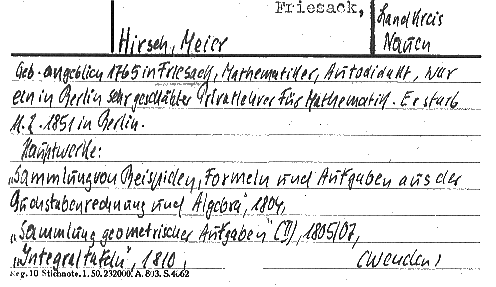 Friesack, Landkreis
Hirsch, Meier Nauen
Geb. angeblich 1765 in Friesack, Mathematiker, Autodidakt, war
ein in Berlin sehr geschätzter Privatlehrer für Mathematik. Er starb
11.2.1851 in Berlin.
Hauptwerke:
„Sammlung von Beispielen, Formeln und Aufgaben aus der
Buchstabenrechnung und Algebra", 1804,
„Sammlung geometrischer Aufgaben" (II), 1805/07,
„Integraltafeln", 1810, (wenden)
Reg. 10 Stichnote. 1. 50. 232000. A. 803. S. 4662